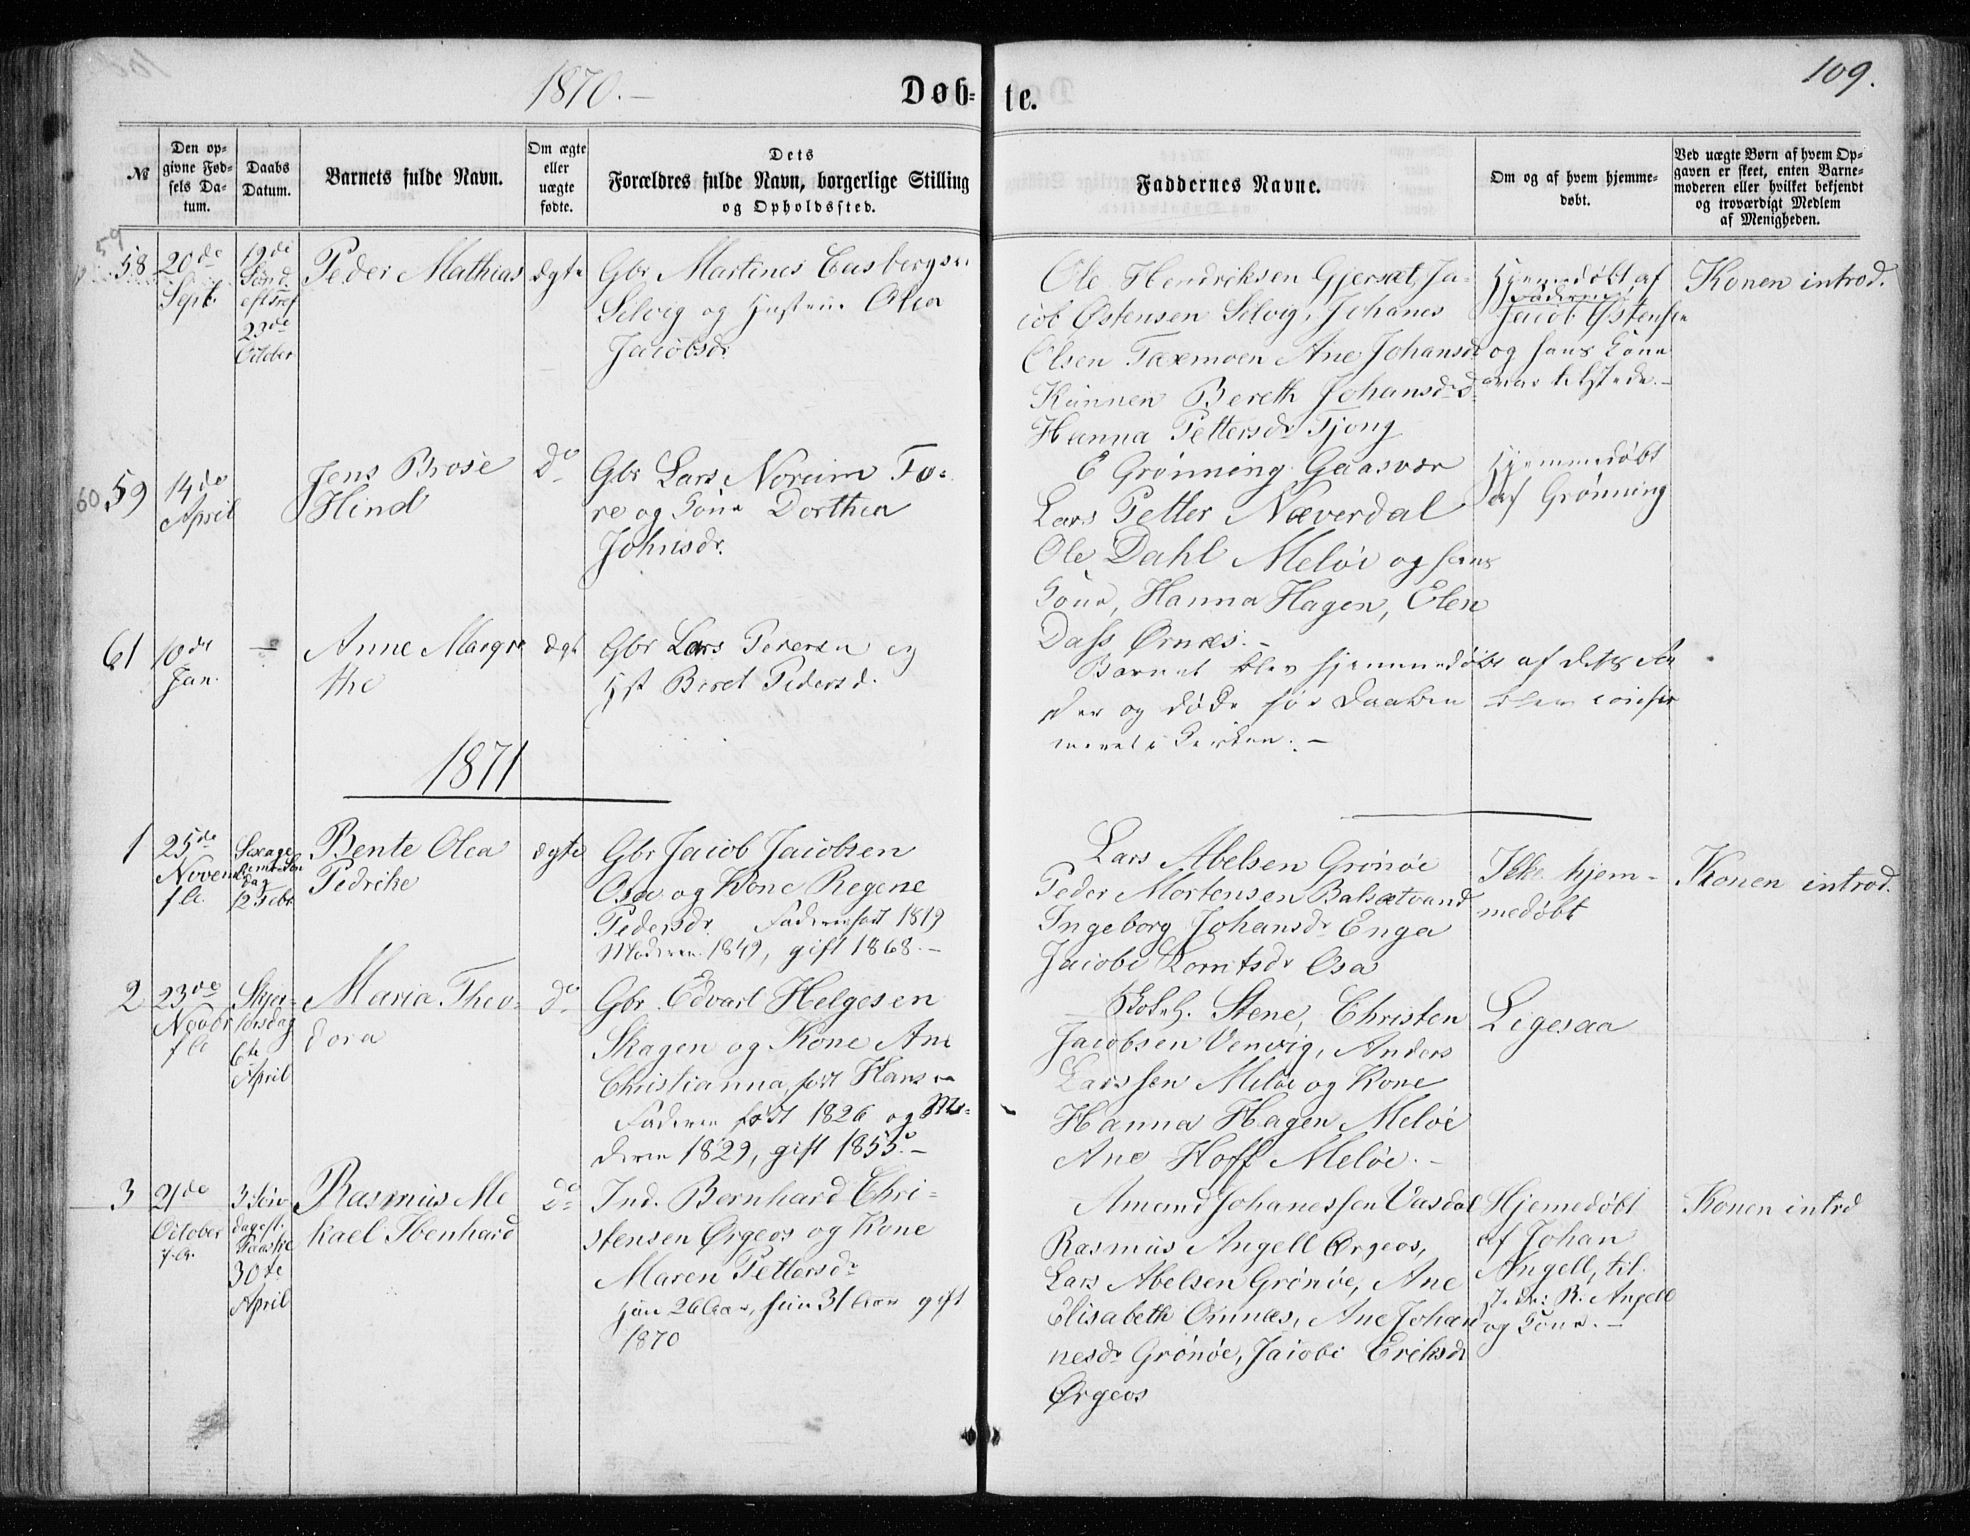 1870.—
Døb-te.
109.
№
Den op-
givne Fød-
sels Da-
tum.
Daabs
Datum.
Barnets fulde Navn.
Om ægte
eller
uægte
fødte.
Dets
Forældres fulde Navn, borgerlige Stilling
og Opholdssted.
Faddernes Navne.
Om og af hvem hjemme-
døbt.
Ved uægte Børn af hvem Op-
gaven er skeet, enten Barne-
moderen eller hvilket bekjendt
og troværdigt Medlem
af Menigheden.
59
58
20de
Sept.
19de
Sønd
eft Tref
23de
October
Peder Mathias
ægte
Gbr Martines
Selvig og Hustrue Olea
Jacobsdr
Ole Hendriksen Gjersæt, Ja-
cob Østensen Selvig, Johanes
Olsen Taxmoen Ane Johansdr
Kunnen Bereth Johansdr
Hanna Pettersdr Tjong
Hjemmedøbt af
Faderen,
Jacob Østensen
og hans Kone
var tilstede.—
Konen introd.
60
59
14de
April
Jens Brose
Hind
Do
Gbr Lars Noreim Fo-
re og Kone Dorthea
Johnsdr.
E Grønning Gaasvær
Lars Petter Næverdal
Ole Dahl Meløe og hans
Kone, Hanna Hagen, Elen
Dass Ørnæs.—
Hjemmedøbt
af Grønning
61
10de
Jan.
—
Anne Margre
the
ægt
Gbr Lars Pedersen og
Hst Beret Pedersd.
Barnet blev hjemmedøbt af dets Fa
der og døde før Daaben blev confir
meret i Kirken.—
1871
1
25de
Novem
f. A.
Sexage
sima Søn
dag
12 Febr
Bente Olea
Pedrike
ægte
Gbr Jacob Jacobsen
Osa og Kone Regene
Pedersdr. Faderen født 1819
Moderen 1849, gift 1868.—
Lars Abelsen Grønøe
Peder Mortensen Balsætvand
Ingeborg Johansdr Enga
Jacobe Lorntsdr Osa
Ikke hjem-
medøbt
Konen introd.
2
23de
Novbr
f A
Skjær-
torsdag
6te
April
Maria Theo-
dora
Do
Gbr. Edvart Helgesen
Skagen og Kone Ane
Christianna, født Hansen
Faderen født 1826 og Mo-
deren 1829, gift 1855.—
Stene, Christen
Jacobsen Venvig, Anders
Larssen Meløe og Kone
Hanna Hagen Meløe
Ane Hoff Meløe.—
Ligesaa
3
21de
October
f. A.
3 Søn
dag eft.
Paaske
30te
April
Rasmus Me
kael Ibenhard
Do
Ind. Bernhard Chri-
stensen Ørgeos og Kone
Maren Pettersdr
Han 26 Aar, hun 31 Aar gift
1870
Amand Johanessen Vasdal
Rasmus Angell Ørgeos,
Lars Abelsen Grønøe, Ane
Elisabeth Ornnæs, Ane Johan
nesdr Grønøe, Jacobe Eriksdr
Ørgeos
Hjemedøbt
af Johan
Angell, til-
st. R. Angell
og Kone.—
Konen introd